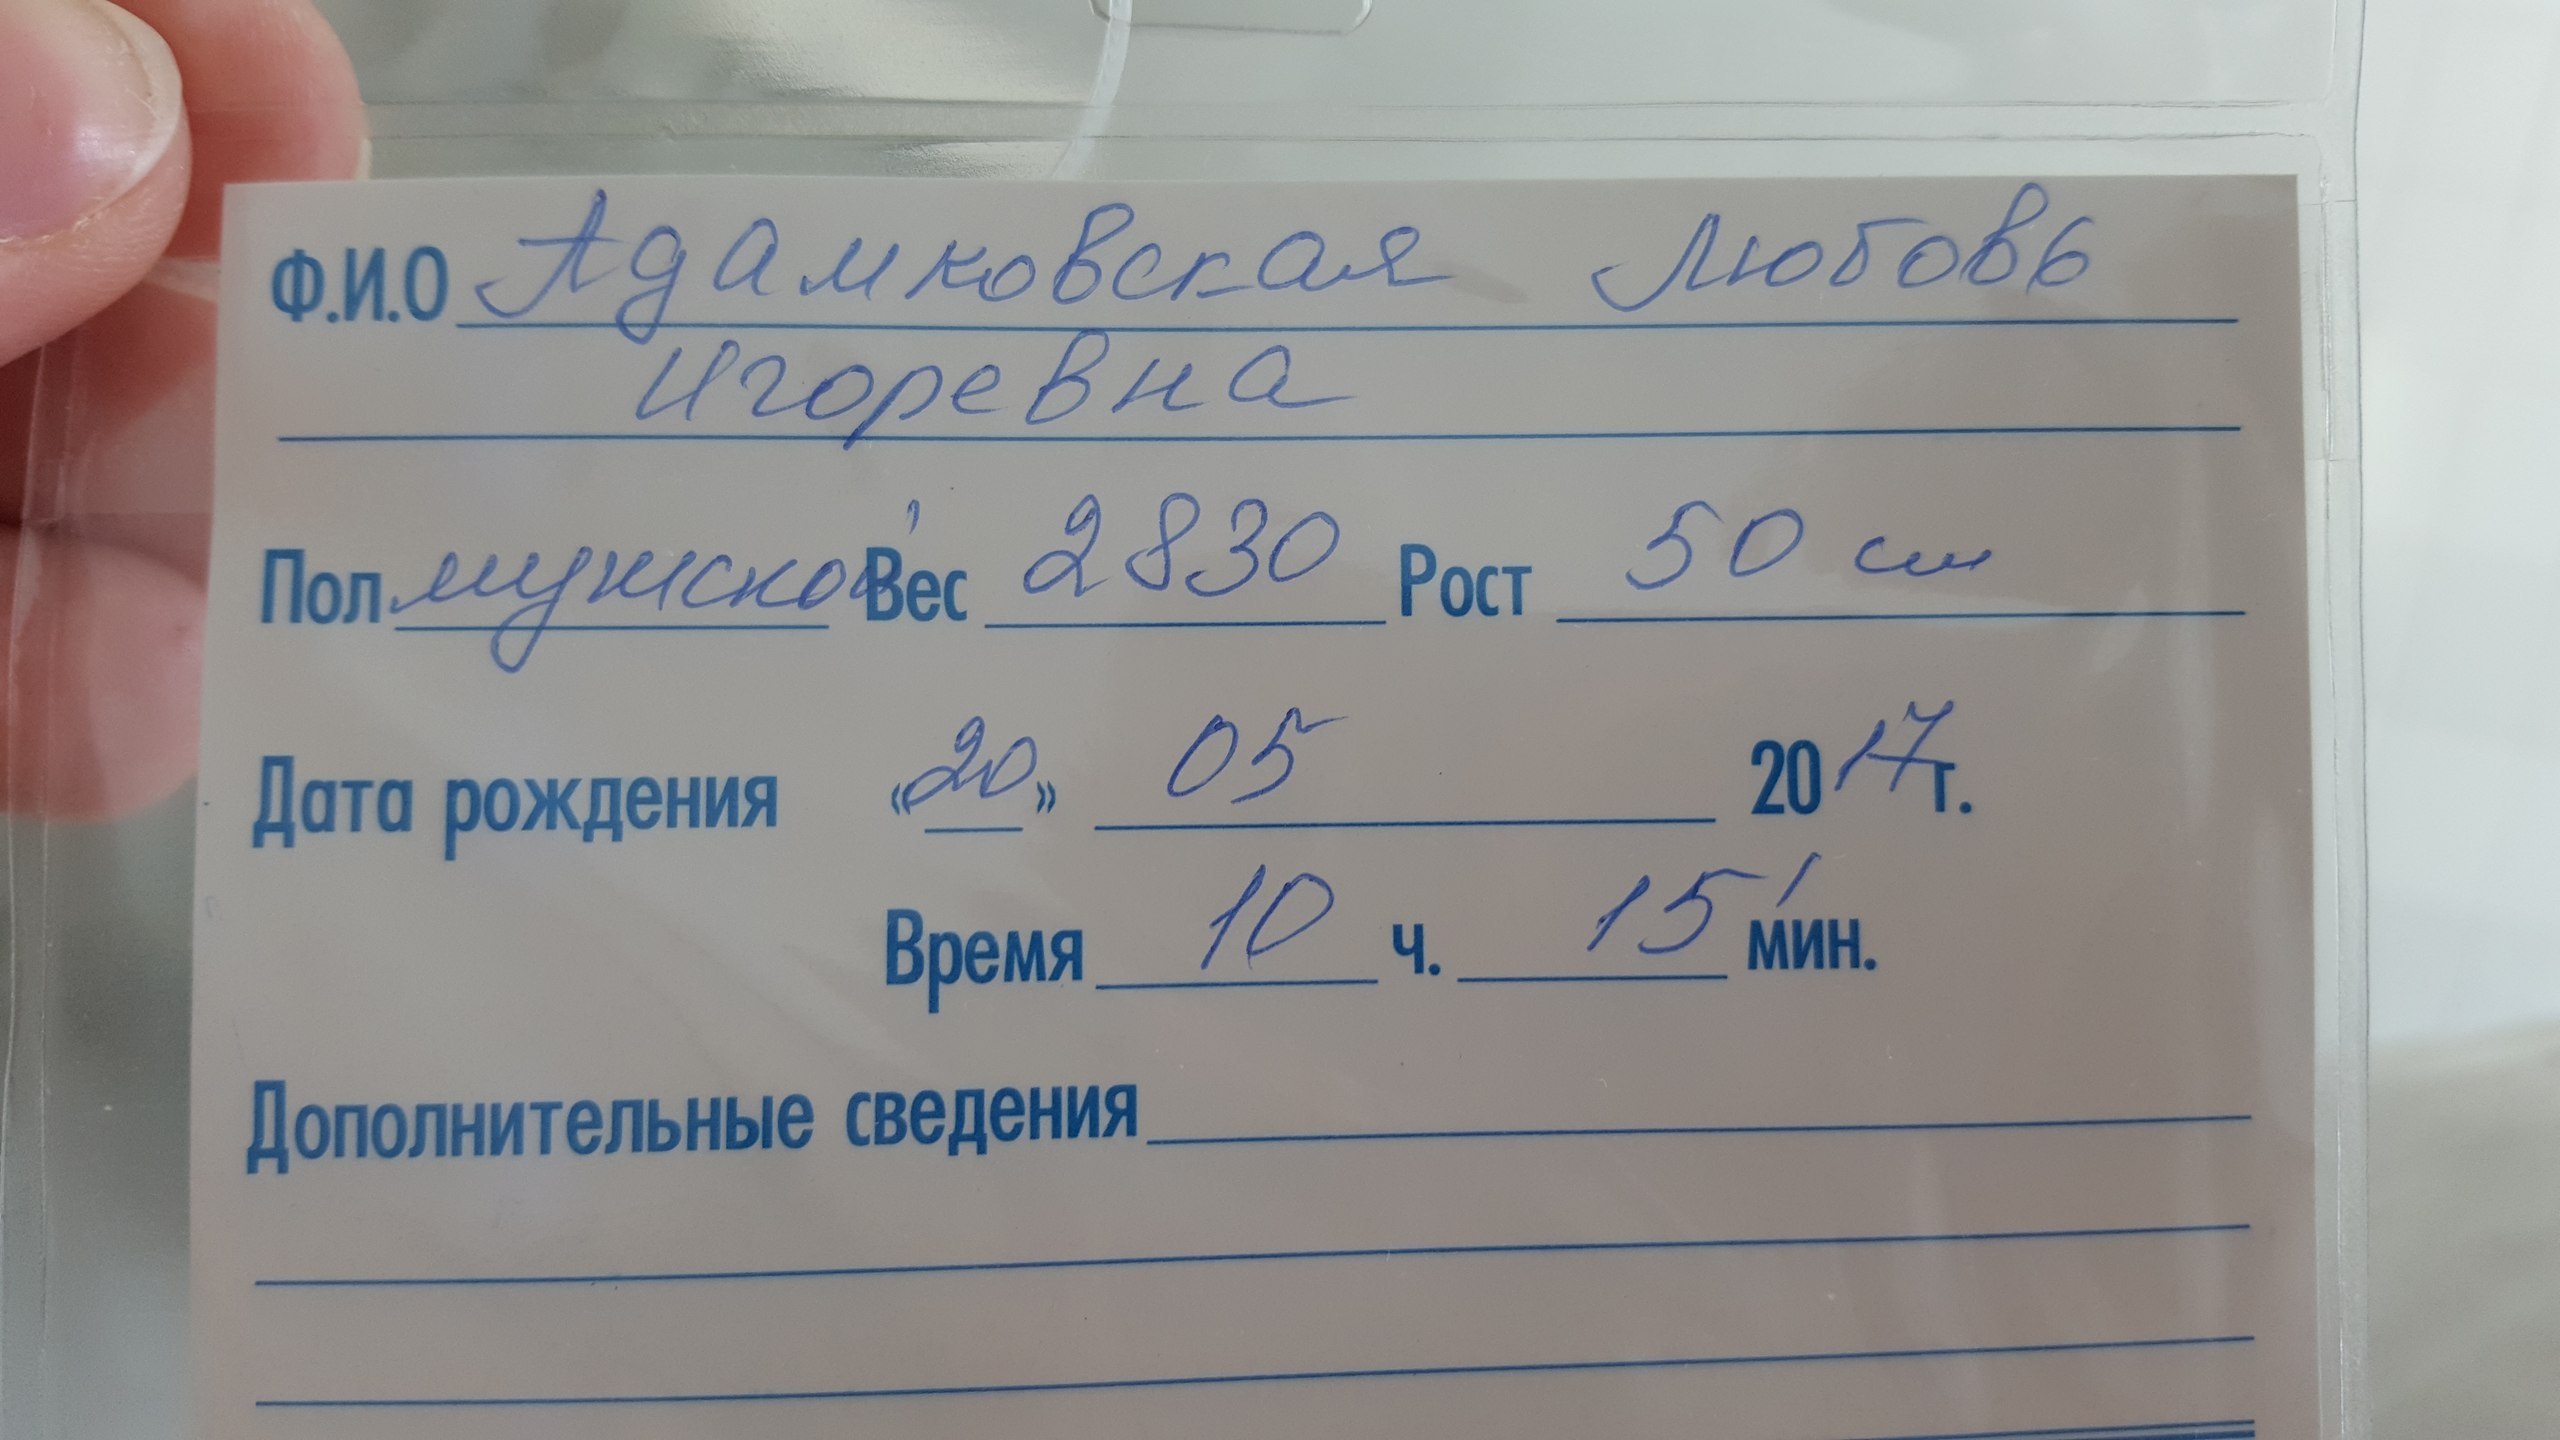 Ф.И.О Адамковская Любовь
Игоревна
Пол мужской Вес 2830 Рост 50 см
Дата рождения «20» 05 2017г.
Время 10 ч. 15 мин.
Дополнительные сведения